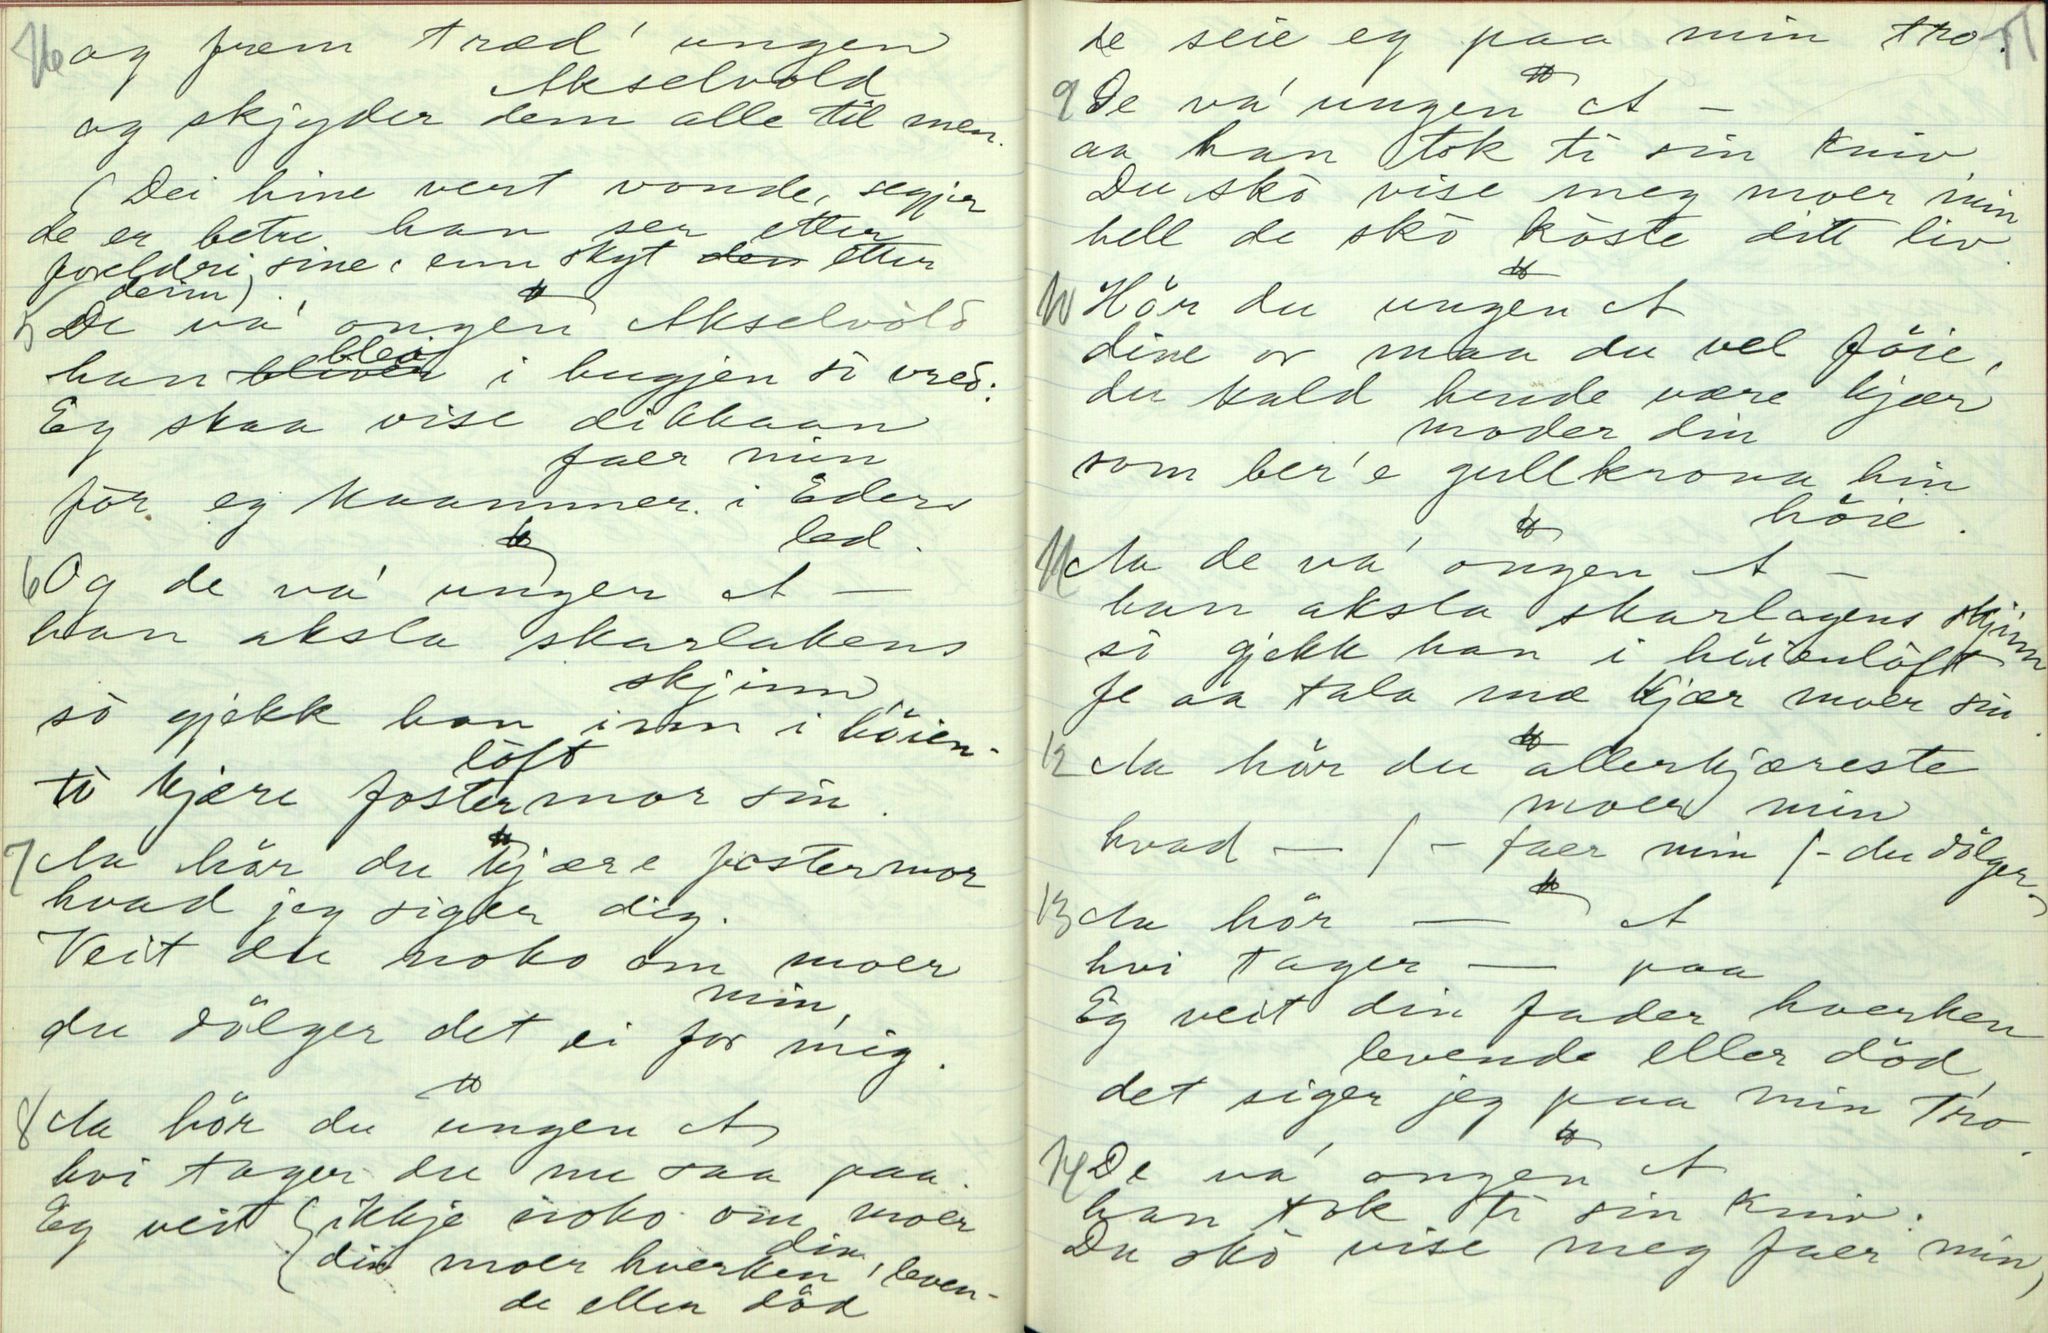 76
og frem træd' ungen
Akselvold
og skjyder dem alle til men.
(Dei hine vert vonde, segjer
de er betre han ser etter
foreldri sine, enn skyt den etter
deim)
5 De va' ongen Akselvold
han bliver blei i hugjen so vred:
Eg skaa vise dikkaan
faer min
før eg kaammer i Eders
led.
6 Og de va' ungen A —
han aksla skarlakens
skjinn,
so gjekk han inn i höien-
löft
to kjære fostermor sin.
7 Aa hör du kjære fostermor
hvad jeg siger dig.
Veit du noko om moer
min,
du dölger det ei for mig.
8 Aa hör du ungen A
hvi tager du nu saa paa.
Eg veit { ikkje noko om moer
din
{ din moer hverken leven-
de eller död
77
de seie eg paa min tro.
9 De va' ungen A —
aa han tok ti sin kniv
Du sko vise meg moer min
hell de sko koste ditt liv.
10 Hör du ungen A
dine or maa du vel föie,
du kald hende være kjær
moder din
som ber'e gullkrona hin
höie.
11 Aa de va' ongen A —
han aksla skarlagens skjinn
so gjekk han i höienloft
fe aa tala mæ kjær moer sin.
12 Aa hör du allerkjæreste
moer min
hvad — /- faer min /- du dölger-
13 Aa hör — A
hvi tager — paa
Eg veit din fader hverken
levende eller död,
det siger jeg paa min Tro.
14 De va' ongen A
han tok ti sin kniv:
Du sko vise meg faer min,